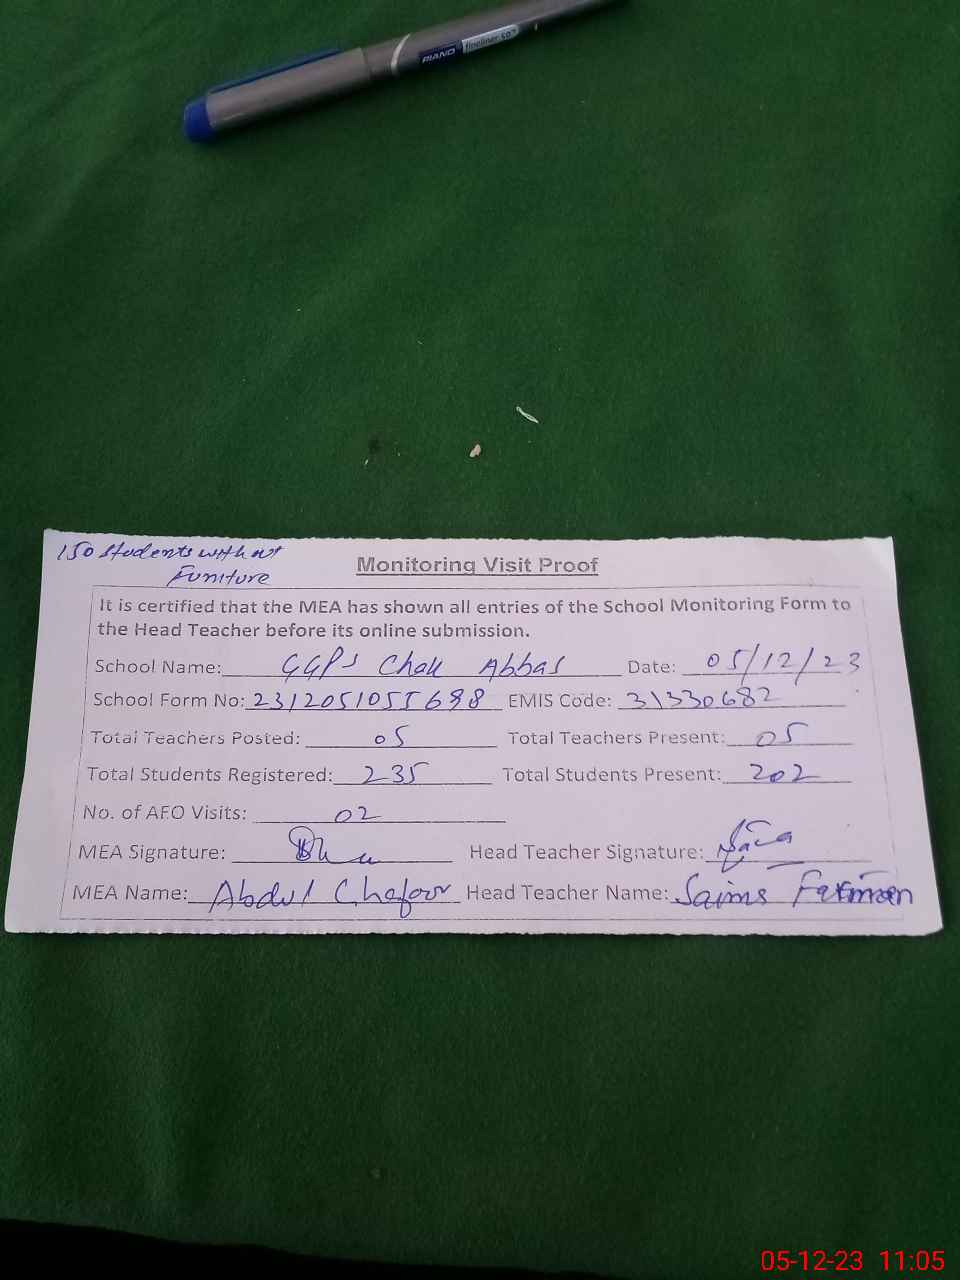 PIANO fineliner
150 students without
Funiture
Monitoring Visit Proof
It is certified that the MEA has shown all entries of the School Monitoring Form to
the Head Teacher before its online submission.
School Name: GGPS Chak Abbas Date: 05/12/23
School Form No: 2312051055698 EMIS Code: 31330682
Total Teachers Posted: 05 Total Teachers Present: 05
Total Students Registered: 235 Total Students Present: 202
No. of AEO Visits: 02
MEA Signature: Head Teacher Signature:
MEA Name: Abdul Ghafoor Head Teacher Name: Saima
05-12-23 11:05